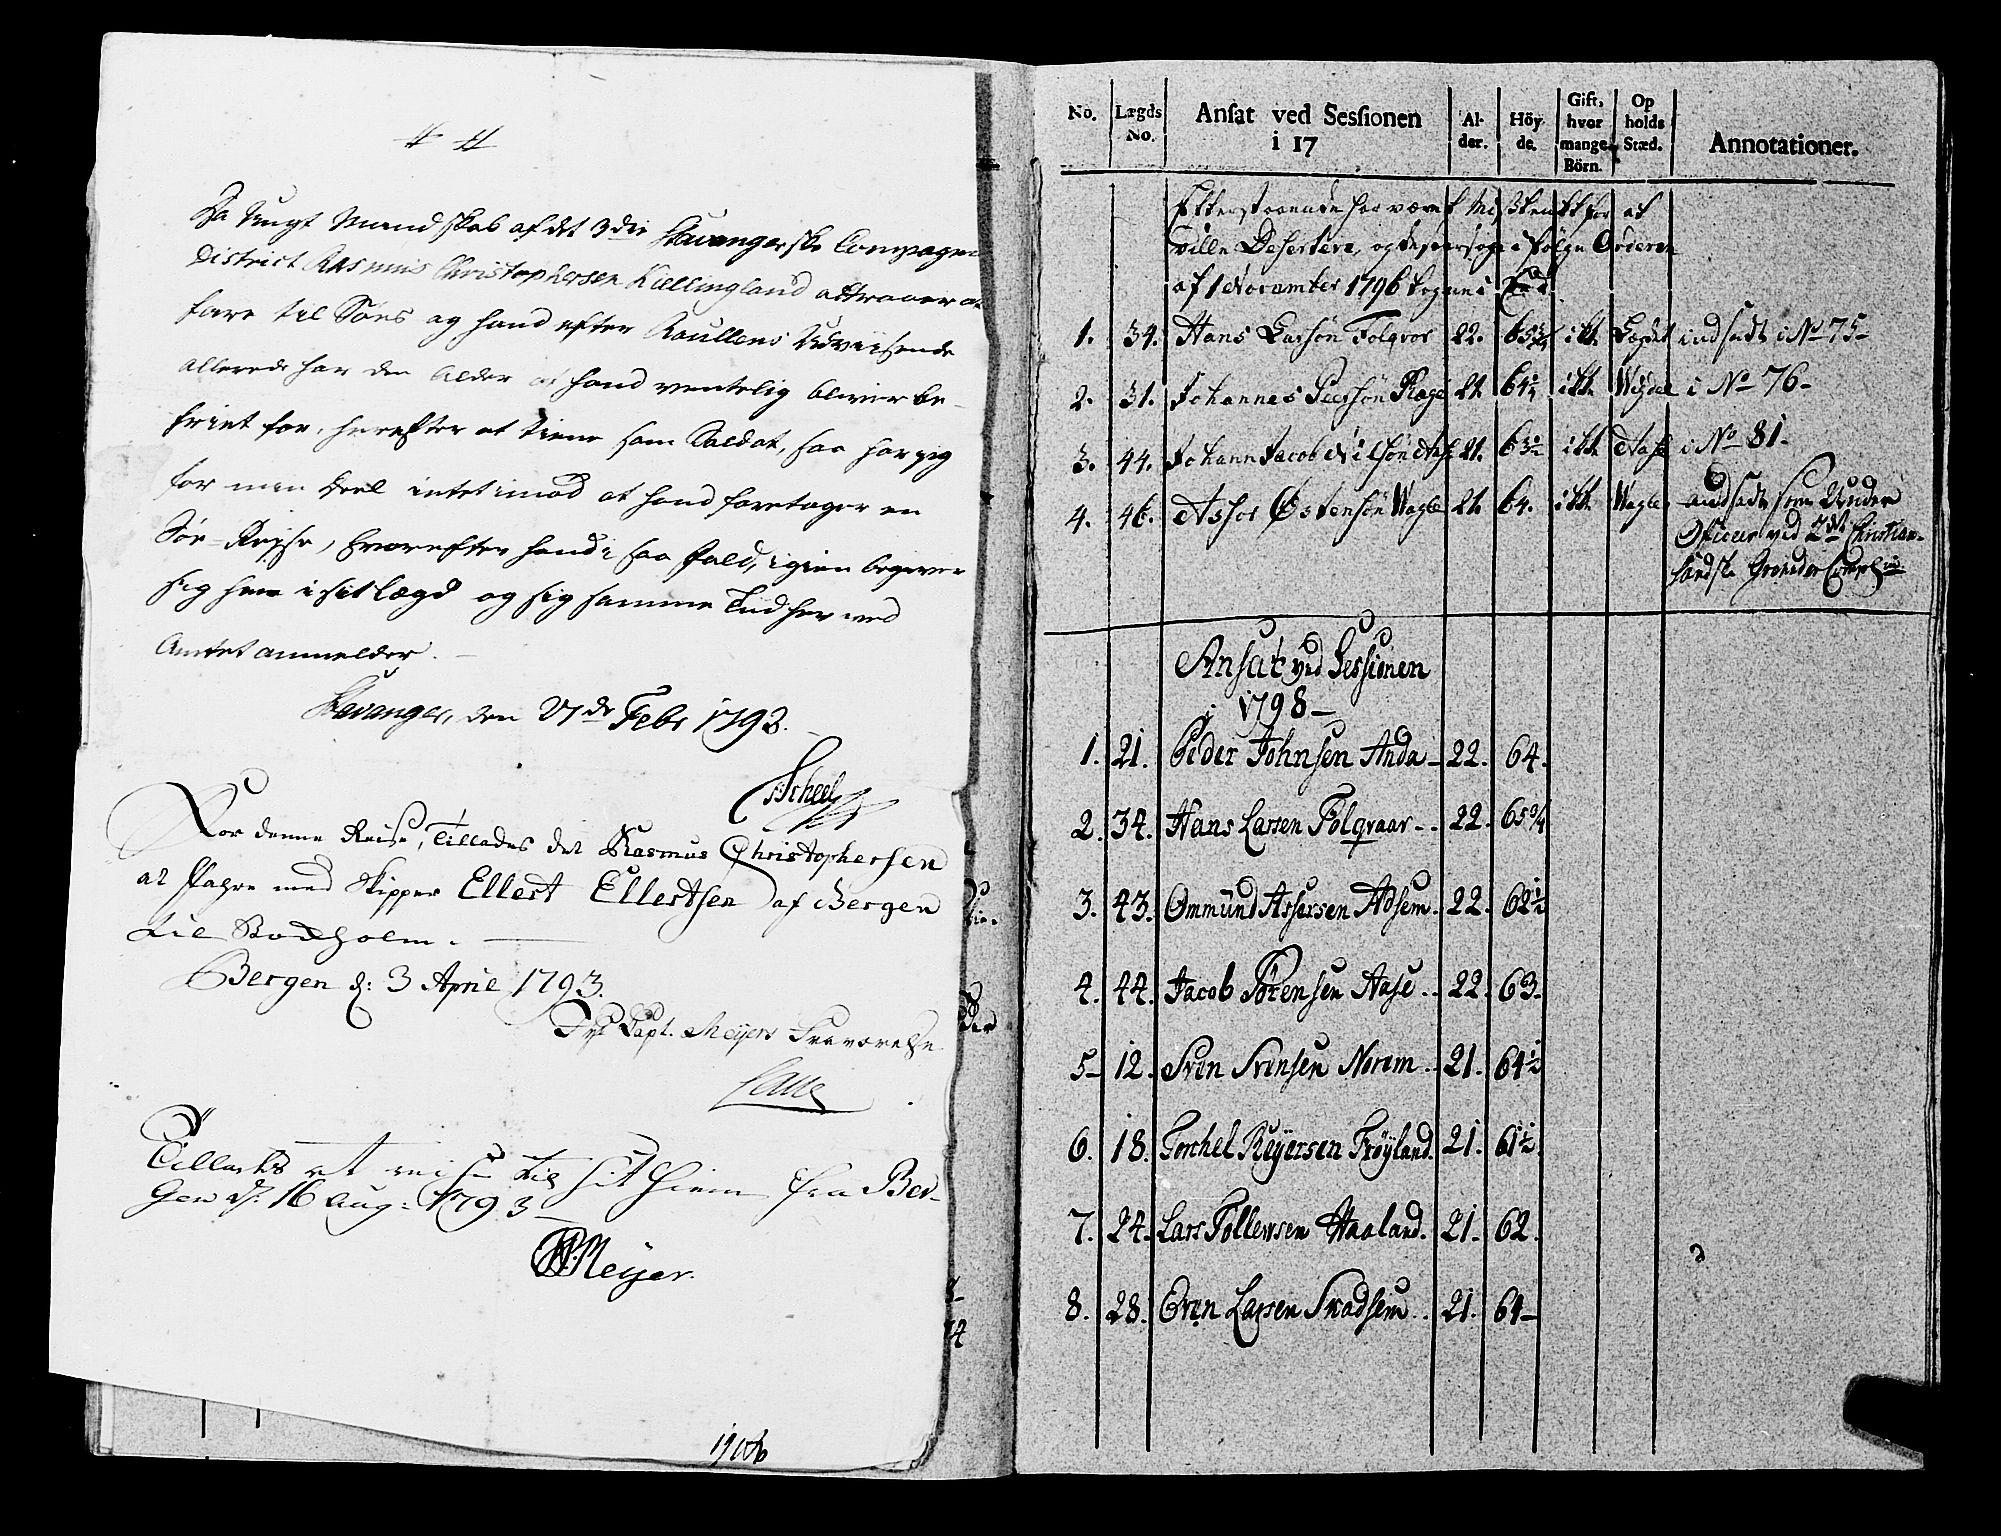 Da Ungt Mandskab af det 3die Stavangerske Compagnie
District Rasmus Christophersen Kiellingland attraaer at
fare til Søes og hand efter Rullens Udviisende
allerede har den Alder at hand ventelig bliver be-
friet for, herefter at tiene som Soldat, saa har jeg
for min Deel intet imod at hand foretager en
Søe-Reyse, hvorefter hand i saa fald, igien begiver
sig hem i sit lægd og sig samme Tid her ved
Amtet anmelder.
Stavanger, den 27de Febr 1793.
Scheel
For denne Reise, Tillades det Rasmus Christophersen
at fahre med Skipper Ellert Ellertsen af Bergen
til Stockholm.
Bergen d: 3 April 1793.
Capt. Meyers Fraværelse
Tillades at reise til sit hiem fra Ber-
gen d: 16 Aug: 1793
Meyer.
No. Lægds No. Ansat ved Sessionen i 17 Al- der. Höy- de. Gift, hvor mange Börn. Op holds Stæd. Annotationer.
Efterstaaende har været Mistænkt for at
ville Desertere, og desaarsage i følge Orderen
af 1 November 1796 tagne i
1. 34. Hans Larsøn Folqvor 22. 65 3/4 ikk. Lægdet indsadt i No 75-
2. 31. Johannes Peersøn Rage 21. 64 1/2 ikk. Wigdel i No 76-
3. 44. Johann Jacob Nilsøn Aase 21. 63 1/2 ikk. Aase i No 81-
4. 46. Assor Østensøn Wagle 21. 64. ikk. Wagle. andsadt som Under
Officeer ved 2det Christian-
sandske Grenader Comp:
Ansat ved Sessionen
i 1798-
1. 21. Peder Johnsen Anda - 22. 64.
2. 34. Hans Larsen Folqvaar - 22. 65 3/4
3. 43. Ommund Assersen Adsem. 22. 62 1/2
4. 44. Jacob Sørensen Aase .. 22. 63.
5- 12. Sven Svensen Norem .. 21. 64 1/2
6. 18. Torchel Reyersen Frøyland. 21. 61 1/2
7. 24. Lars Tollevsen Haaland. 21. 62.
8. 28. Even Larsen Svadsem .. 21. 64-